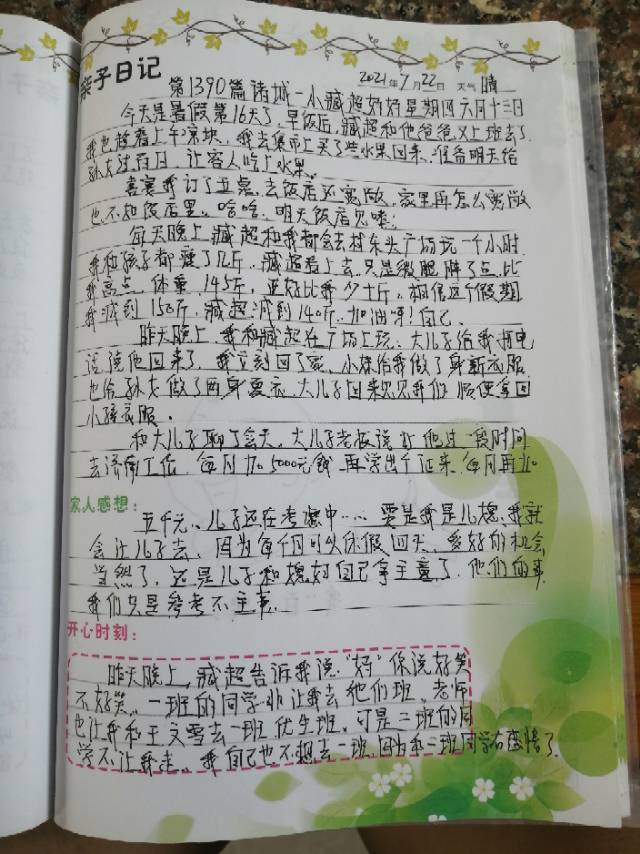 亲子日记
2021年7月22日 天气 晴
第1390篇 诸城一小臧超好好星期四六月十三日
今天是暑假第16天了，早饭后，臧超和他爸爸又上班去了
我也趁着上午凉块，我去集市上买了些水果回来，准备明天给
孙女过百日，让客人吃上水果。
喜宴我订了五桌，去饭店还宽敞，家里再怎么宽敞
也不如饭店里，哈哈，明天饭店见喽！
每天晚上臧超和我都会去村东头广场玩一个小时
我和孩子都瘦了几斤，臧超看上去只是微肥胖了点，比
我高点，体重145斤，正好比我少十斤。相信这个假期
我减到150斤，臧超减到140斤，加油呀！自己
昨天晚上，我和臧超在广场上玩，大儿子给我打电
话说他回来了，我立刻回了家，小妹给我做了身新衣服
也给孙女做了两身夏衣，大儿子回来见见我们，顺便拿回
小孩衣服。
和大儿子聊了会天，大儿子老板说让他过一段时间
去济南工作，每月加5000元钱，再学出个证来，每月再加
家人感想：
五千元，儿子还在考虑中……要是我是儿媳，我就
会让儿子去，因为每个月可以休假四天，多好的机会
当然了，还是儿子和媳妇自己拿主意了，他们的事
我们只是参考不主事。
开心时刻：
昨天晚上，臧超告诉我说："妈"你说好笑
不好笑，一班的同学非让我去他们班，老师
也让我和王文雪去一班优生班，可是二班的同
学不让我走，我自己也不想去一班，因为和二班同学有感情了